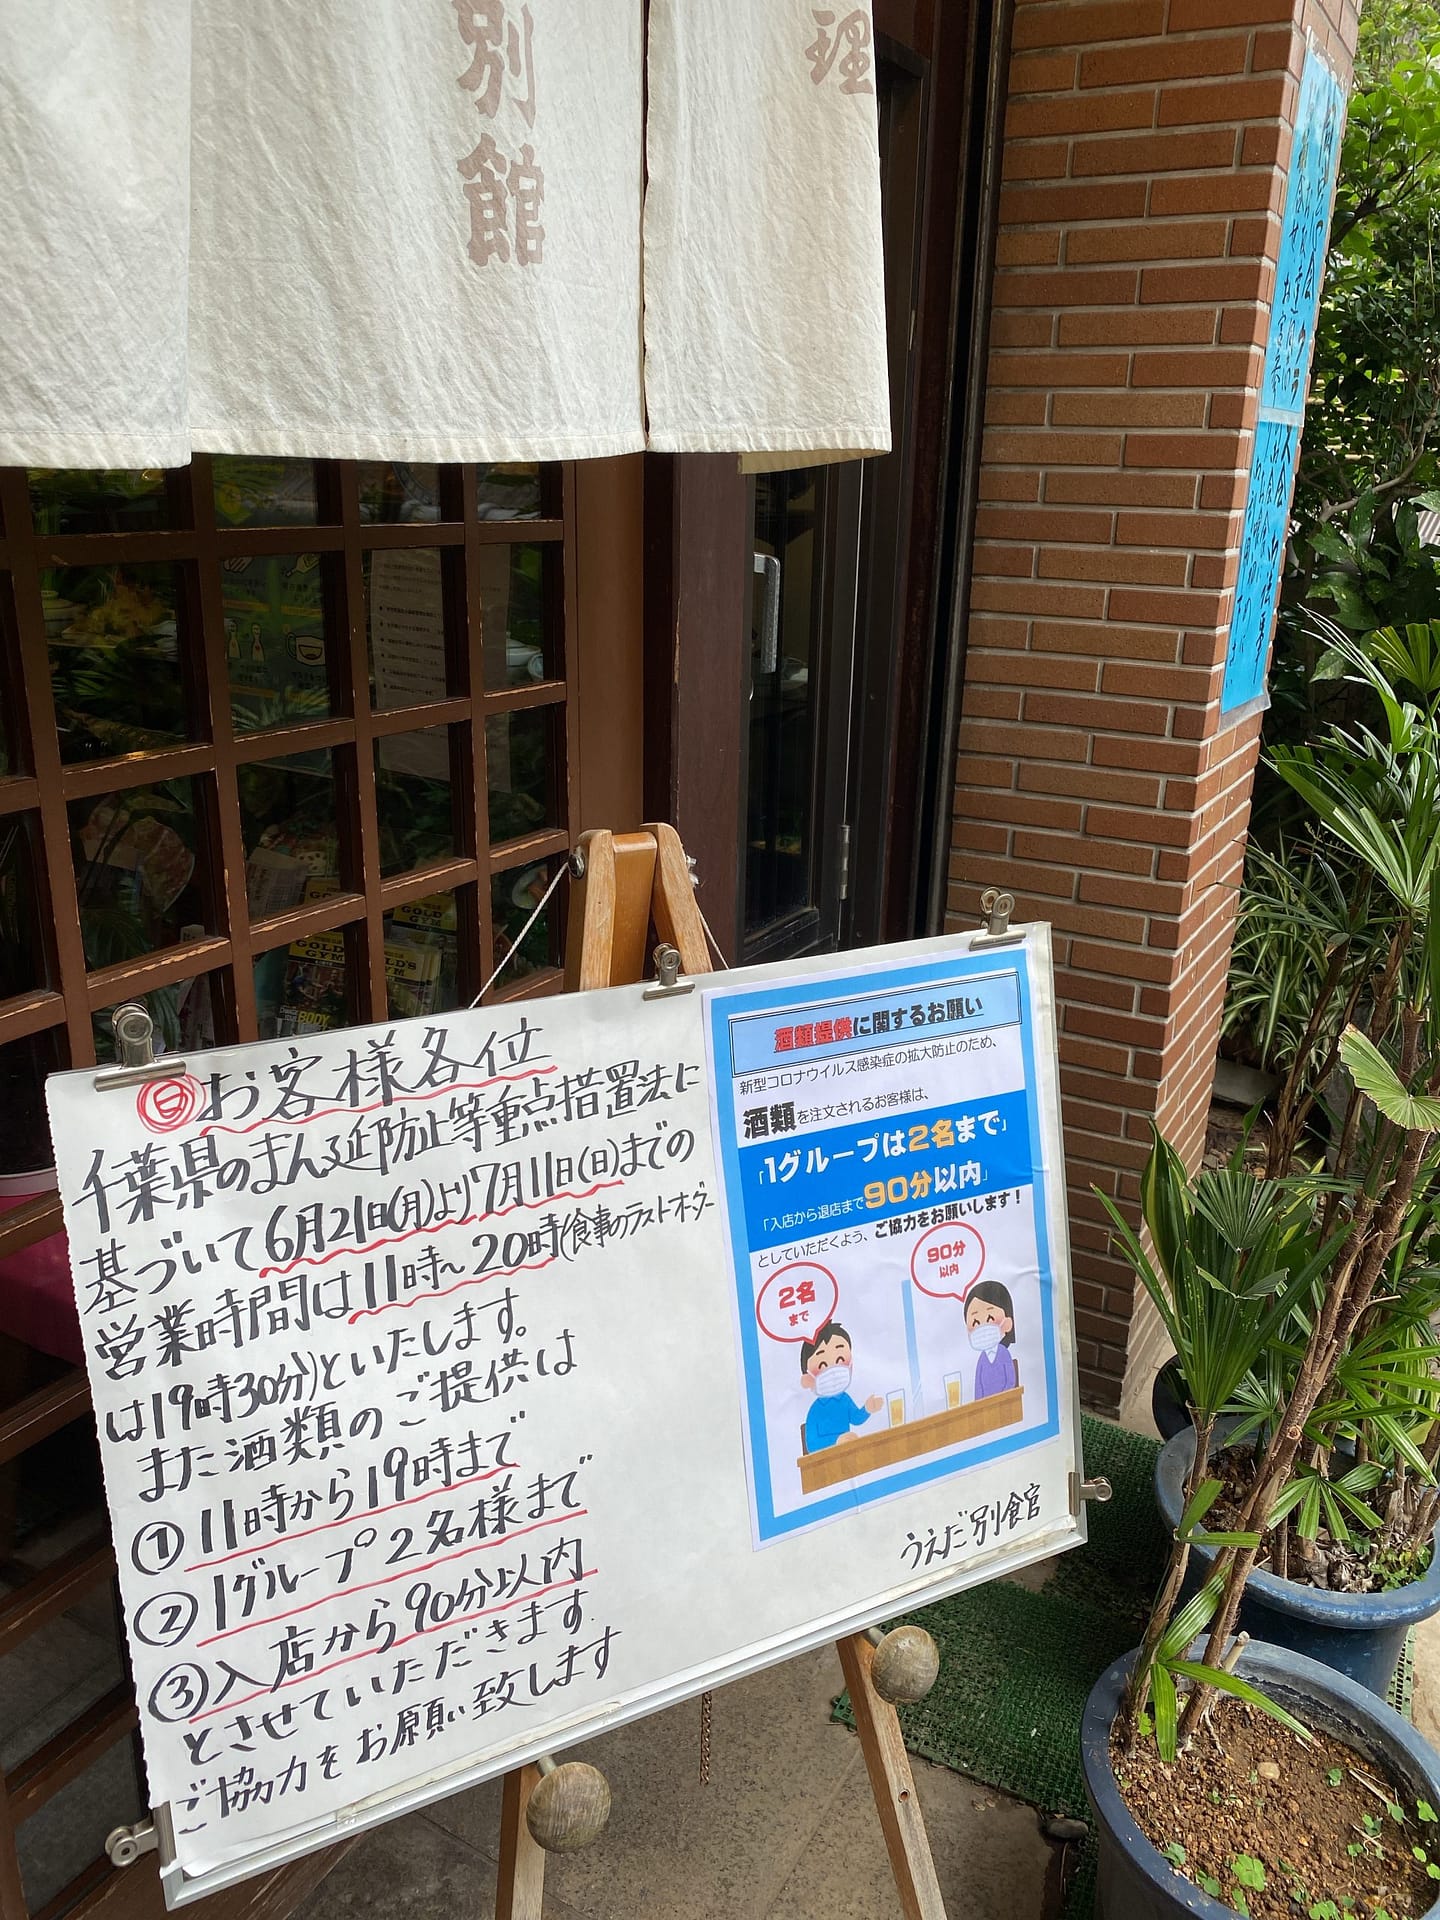 別館
理
日お客様各位
千葉県のまん延防止等重点措置法に
基づいて6月21日(月)より7月11日(日)までの
営業時間は11時〜20時(食事のラストオーダー
は19時30分)といたします。
また酒類のご提供は
①11時から19時まで
②1グループ2名様まで
③入店から90分以内
とさせていただきます.
ご協力をお願い致します
酒類提供に関するお願い
新型コロナウイルス感染症の拡大防止のため、
酒類を注文されるお客様は、
「1グループは2名まで」
「入店から退店まで90分以内」
としていただくよう、ご協力をお願いします!
2名
まで
90分
以内
うえだ別館
GOLD'S
GYM
GOLD
GYM
BODY